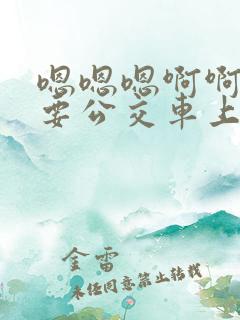 嗯嗯嗯啊啊
要公交车上
金雷
未经同意禁止转载